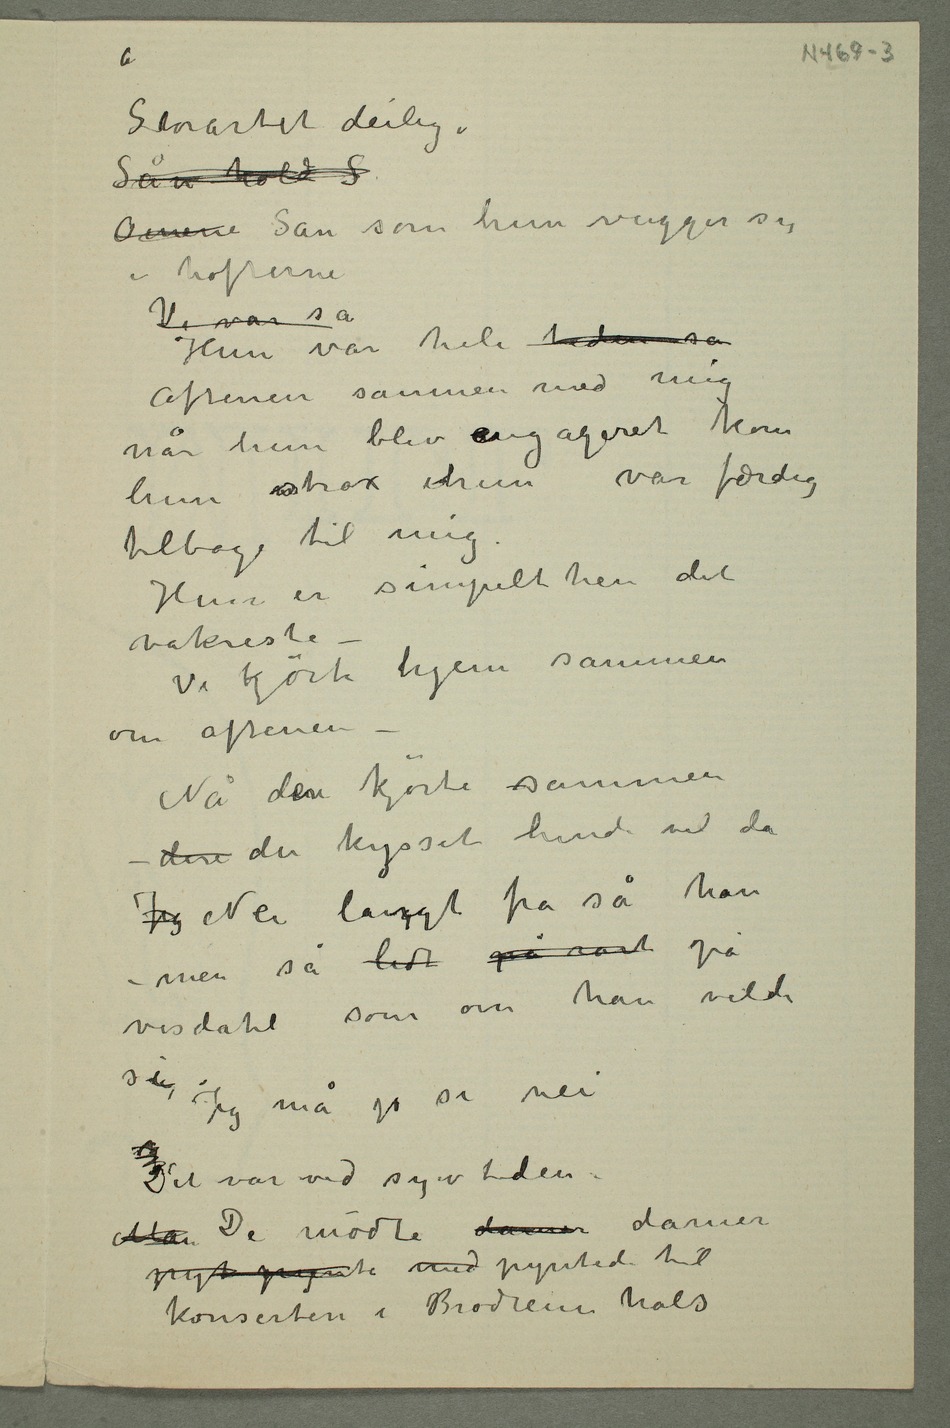 6
N469-3
Storartet deilig.
Sån hold S
Oinene Sån som hun vugger sig
i hofterne
Vi var så
Hun var hele tiden så
aftenen sammen med mig
når hun blev engageret kom
hun strax hun var færdig
tilbage til mig.
Hun er simpelthen det
vakreste –
Vi kjörte hjem sammen
om aftenen –
Nå den kjörte sammen
– dere du kysset hende vel da
Jeg Nei langt fra så han
– men så lidt på rart på
visdatil som om han vilde
si, Jeg må jo si nei
Det var ved syvtiden.
Man De mödte damer damer
pyt pynte med pyntede til
konserten i Brödrene hals